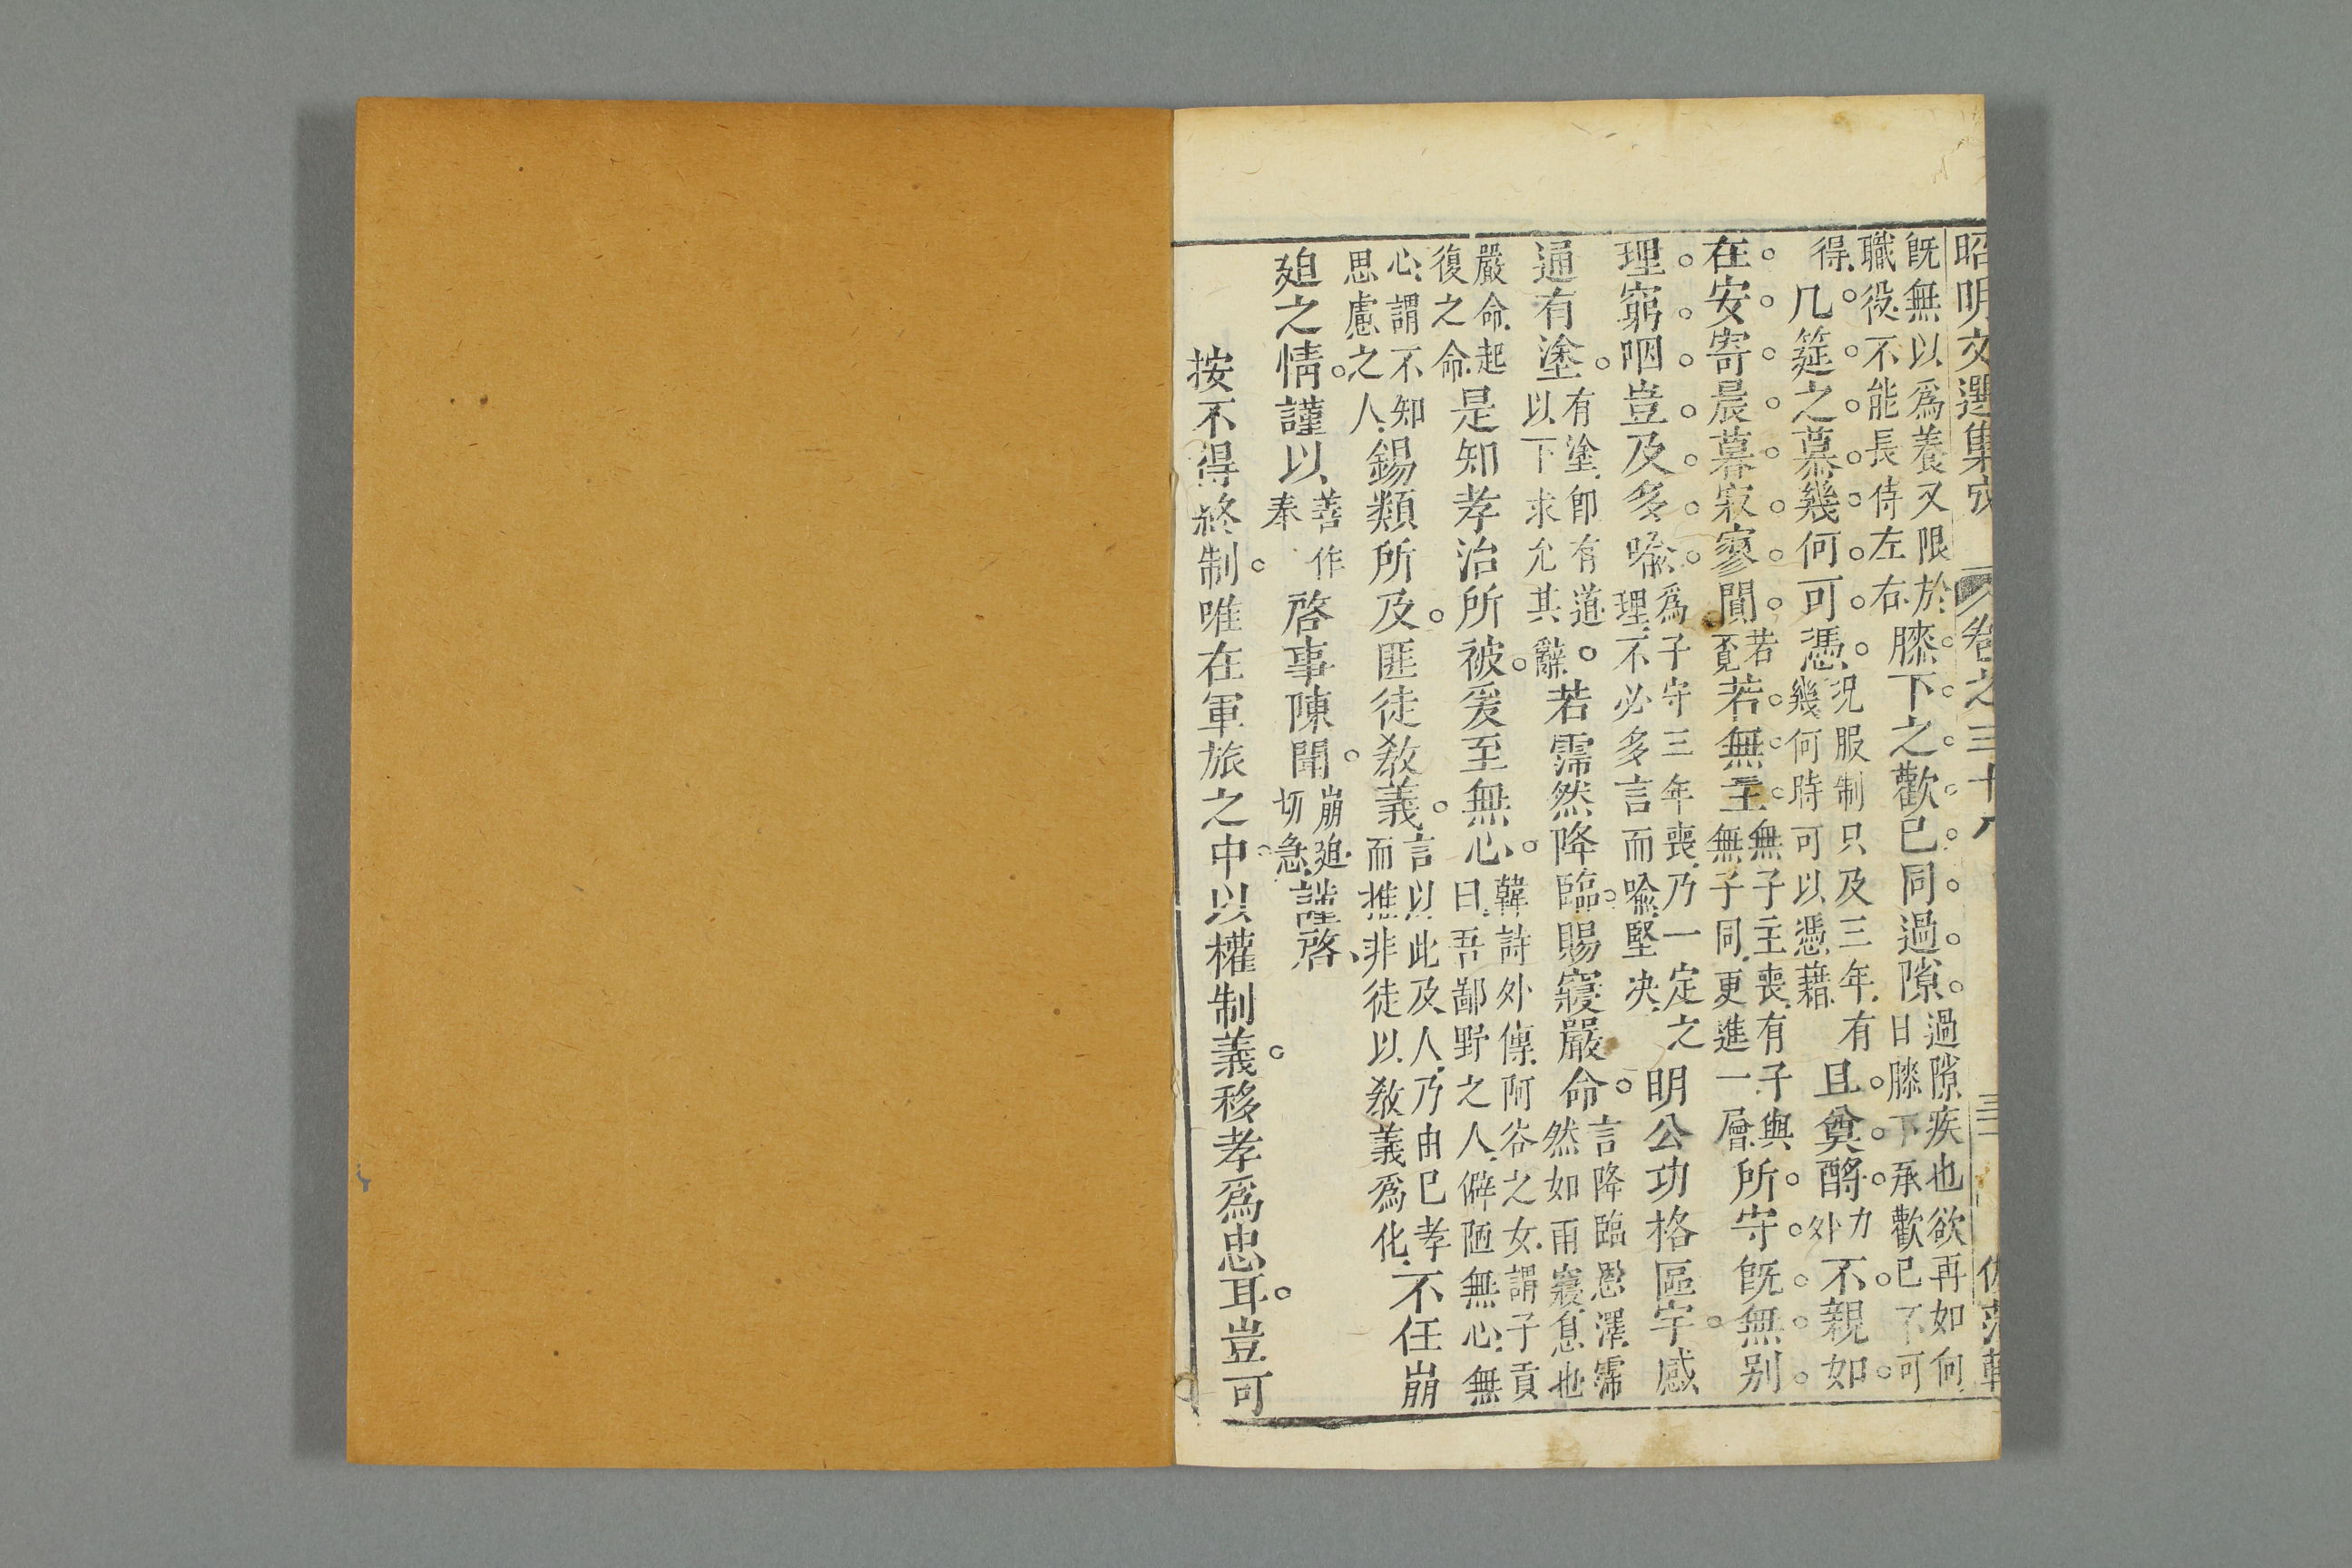 昭明文選集成 卷之三十八 三
既無以爲養又限於
職役不能長侍左右
膝下之歡已同過隙
過隙疾也欲再如何
日膝下承歡已不可
得
几筵之慕幾何可憑
況服制只及三年有
幾何時可以憑藉
且奠酹
力
外
不親如
在安寄晨暮寂寥閴
若
覓
若無主
無子主喪有子與
無子同更進一層
所守既無别
理窮咽豈及多喻
爲子守三年喪乃一定之
理不必多言而喻堅决
明公功格區宇感
通有塗
有塗即有道
以下求允其辭
若霈然降臨賜寢嚴命
言降臨恩澤霈
然如雨寢息也
嚴命起
復之命
是知孝治所被爰至無心
韓詩外傳阿谷之女謂子貢
曰吾鄙野之人僻陋無心無
心謂不知
思慮之人
錫類所及匪徒教義
言以此及人乃由已孝
而推非徒以教義爲化
不任崩
廹之情謹以
善作
奉
啓事陳聞
崩廹
切急
謹啓
按不得終制唯在軍旅之中以權制義移孝爲忠耳豈可